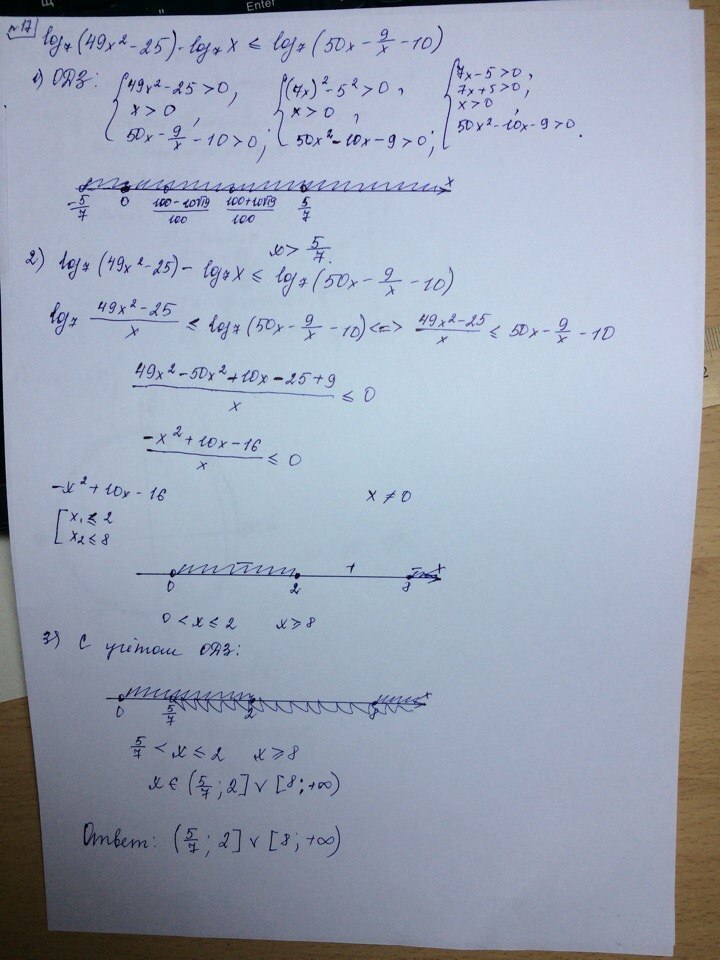 Enter
№17
log₇(49x²-25)-log₇x ≤ log₇(50x-9/x-10)
1) ОДЗ: { 49x²-25>0, x>0, 50x-9/x-10>0; { (7x)²-5²>0, x>0, 50x²-10x-9>0; { 7x-5>0, 7x+5>0, x>0, 50x²-10x-9>0.
x
-5/7 0 (100-10√19)/100 (100+10√19)/100 5/7
x>5/7.
2) log₇(49x²-25)-log₇x ≤ log₇(50x-9/x-10)
log₇ (49x²-25)/x ≤ log₇(50x-9/x-10) <=> (49x²-25)/x ≤ 50x-9/x-10
(49x²-50x²+10x-25+9)/x ≤ 0
(-x²+10x-16)/x ≤ 0
-x²+10x-16 x≠0
[ x₁≤2
x₂≤8
- + - x
0 2 8
0<x≤2 x≥8
3) С учётом ОДЗ:
x
0 5/7 2 8
5/7<x≤2 x≥8
x∈(5/7;2]∨[8;+∞)
Ответ: (5/7;2]∨[8;+∞)